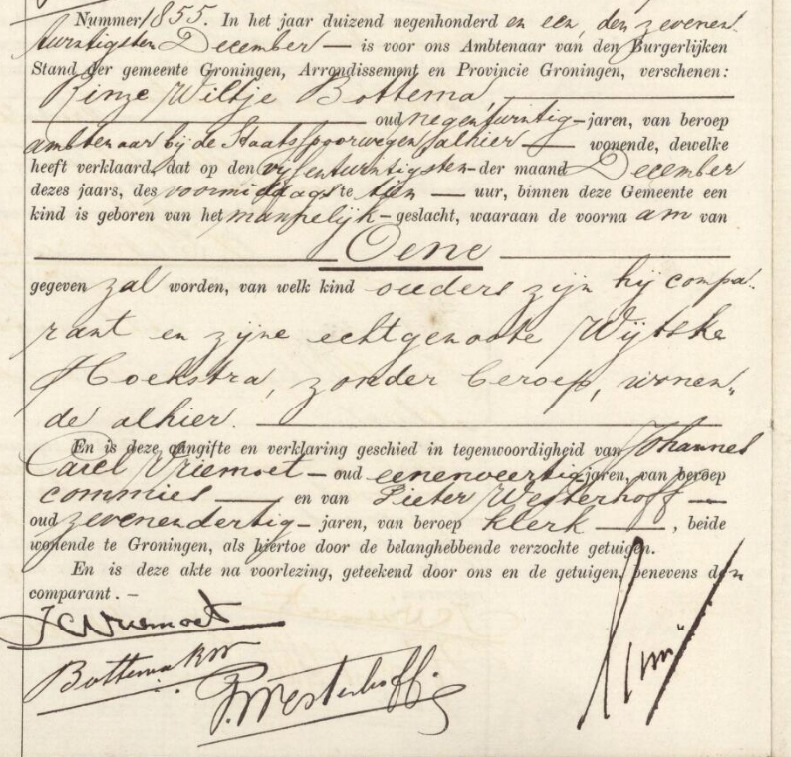 Nummer 1855. In het jaar duizend negenhonderd en een, den zevenen
twintigsten December — is voor ons Ambtenaar van den Burgerlijken
Stand der gemeente Groningen, Arrondissement en Provincie Groningen, verschenen:
Rinze Wiltje Bottema,
oud negentwintig - jaren, van beroep
ambtenaar bij de Staatsspoorwegen alhier — wonende, dewelke
heeft verklaard, dat op den vijfentwintigsten - der maand December
dezes jaars, des voormiddags te tien — uur, binnen deze Gemeente een
kind is geboren van het mannelijk - geslacht, waaraan de voorna am van
— Oene —
gegeven zal worden, van welk kind ouders zijn hij compa„
rant en zijne echtgenoote Wijtske
Hoekstra, zonder beroep, wonen„
de alhier. —
En is deze aangifte en verklaring geschied in tegenwoordigheid van Johannes
Carel Vriemoet - oud eenenveertig jaren, van beroep
commies — en van Pieter Westerhoff —
oud zevenendertig - jaren, van beroep klerk — , beide
wonende te Groningen, als hiertoe door de belanghebbende verzochte getuigen.
En is deze akte na voorlezing, geteekend door ons en de getuigen, benevens den
comparant. –
JCVriemoet
Bottema RW
P. Westerhoff.